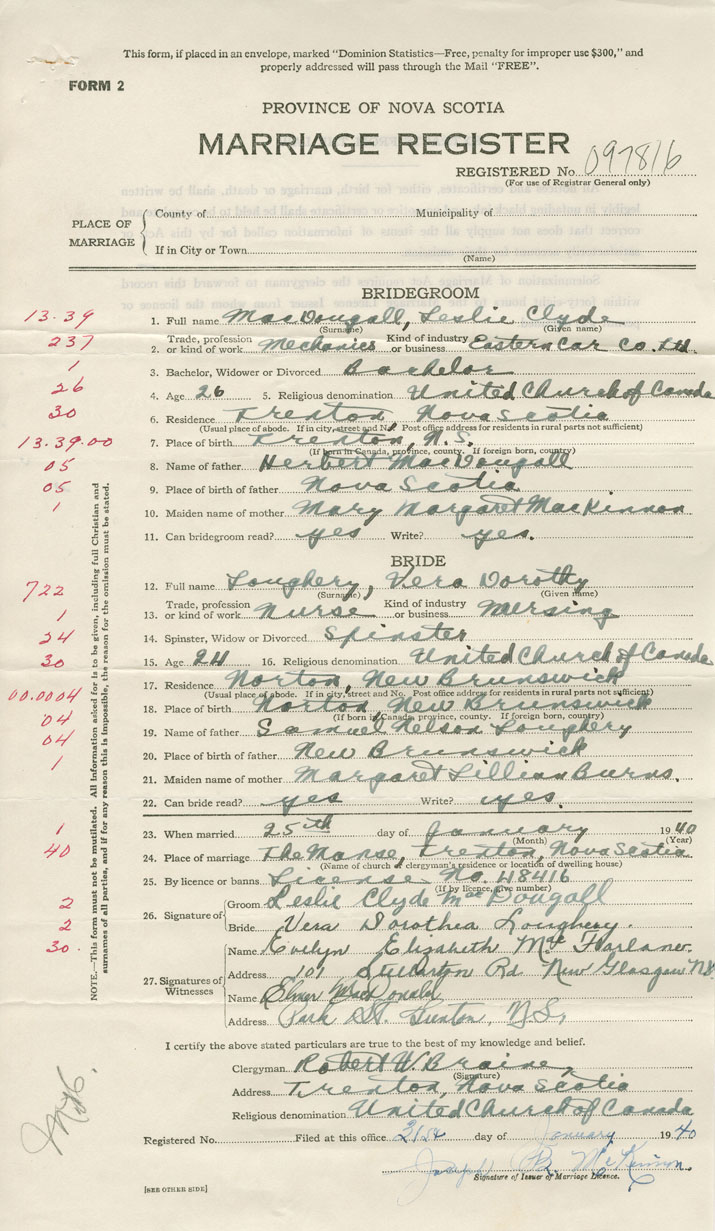 This form, if placed in an envelope, marked "Dominion Statistics—Free, penalty for improper use $300," and
properly addressed will pass through the Mail "FREE".
FORM 2
PROVINCE OF NOVA SCOTIA
MARRIAGE REGISTER
REGISTERED No. 097816
(For use of Registrar General only)
PLACE OF MARRIAGE
County of Municipality of
If in City or Town
(Name)
BRIDEGROOM
13.39 1. Full name MacDougall, Leslie Clyde
(Surname) (Given name)
237 2. Trade, profession or kind of work Mechanics Kind of industry or business Eastern Car Co. Ltd.
1 3. Bachelor, Widower or Divorced Bachelor
26 4. Age 26 5. Religious denomination United Church of Canada
30 6. Residence Trenton, Nova Scotia
(Usual place of abode. If in city, street and No. Post office address for residents in rural parts not sufficient)
13.39.00 7. Place of birth Trenton, N.S.
(If born in Canada, province, county. If foreign born, country)
05 8. Name of father Herbert MacDougall
05 9. Place of birth of father Nova Scotia
1 10. Maiden name of mother Mary Margaret MacKinnon
11. Can bridegroom read? yes Write? yes.
BRIDE
722 12. Full name Loughery, Vera Dorothy
(Surname) (Given name)
1 13. Trade, profession or kind of work Nurse Kind of industry or business Nursing
24 14. Spinster, Widow or Divorced Spinster
30 15. Age 24 16. Religious denomination United Church of Canada
17. Residence Norton, New Brunswick
(Usual place of abode. If in city, street and No. Post office address for residents in rural parts not sufficient)
00.0004 18. Place of birth Norton, New Brunswick
(If born in Canada, province, county. If foreign born, country)
04 19. Name of father Samuel Nelson Loughery
04 20. Place of birth of father New Brunswick
1 21. Maiden name of mother Margaret Lillian Burns.
22. Can bride read? yes Write? yes.
1 23. When married 25th day of January 1940
(Month) (Year)
40 24. Place of marriage The Manse, Trenton, Nova Scotia
(Name of church or clergyman's residence or location of dwelling house)
25. By licence or banns License No. W8416
(If by licence, give number)
2 26. Signature of Groom Leslie Clyde MacDougall
2 Bride Vera Dorothea Loughery.
30. 27. Signatures of Witnesses Name Evelyn Elizabeth
Address 101 Stellarton Rd New Glasgow N.S.
Name Elmer MacDonald
Address Park St. Trenton, N.S.
NOTE.—This form must not be mutilated. All information asked for is to be given, including full Christian and
surnames of all parties, and if for any reason this is impossible, the reason for the omission must be stated.
I certify the above stated particulars are true to the best of my knowledge and belief.
Clergyman Robert W. Braine,
(Signature)
Address Trenton, Nova Scotia
Religious denomination United Church of Canada
Registered No. Filed at this office 31st day of January 1940
Joseph B. McKinnon.
Signature of Issuer of Marriage Licence.
[SEE OTHER SIDE]